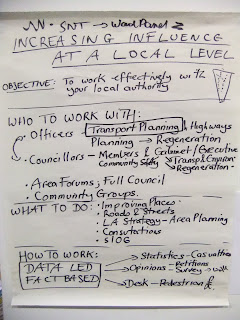 SNT → Ward Panel
INCREASING INFLUENCE
AT A LOCAL LEVEL
OBJECTIVE: To work effectively with
your local authority
WHO TO WORK WITH:
Officers - Transport Planning & Highways
Planning → Regeneration
Councillors - Members & Cabinet/Executive
Community Safety → Transp & Environ
Regeneration
• Area Forums; Full Council
• Community Groups.
WHAT TO DO: • Improving Places
• Roads & Streets
• LA Strategy - Area Planning
• Consutations
• SLOG
HOW TO WORK:
DATA LED
FACT BASED
→ Statistics - Casualties
→ Opinions - Petitions
- Survey
→ Desk - Pedestrian